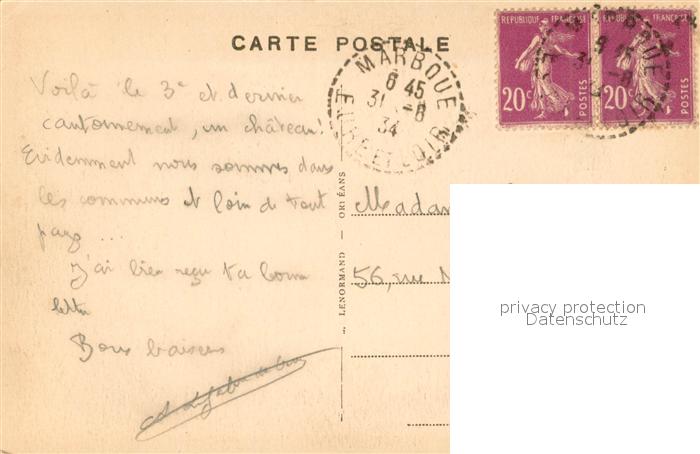 CARTE POSTALE
Voilà le 3e et dernier
cantonnement, un château!
Evidemment nous sommes dans
les communs et loin de tout
pays ...
J'ai bien reçu ta bonne
lettre
Bons baisers
LENORMAND — ORLÉANS
MARBOUE
6 45
31 -8
34
EURE ET LOIR
REPUBLIQUE FRANÇAISE
20c
POSTES
REPUBLIQUE FRANÇAISE
20c
POSTES
Madam
56, rue
privacy protection
Datenschutz